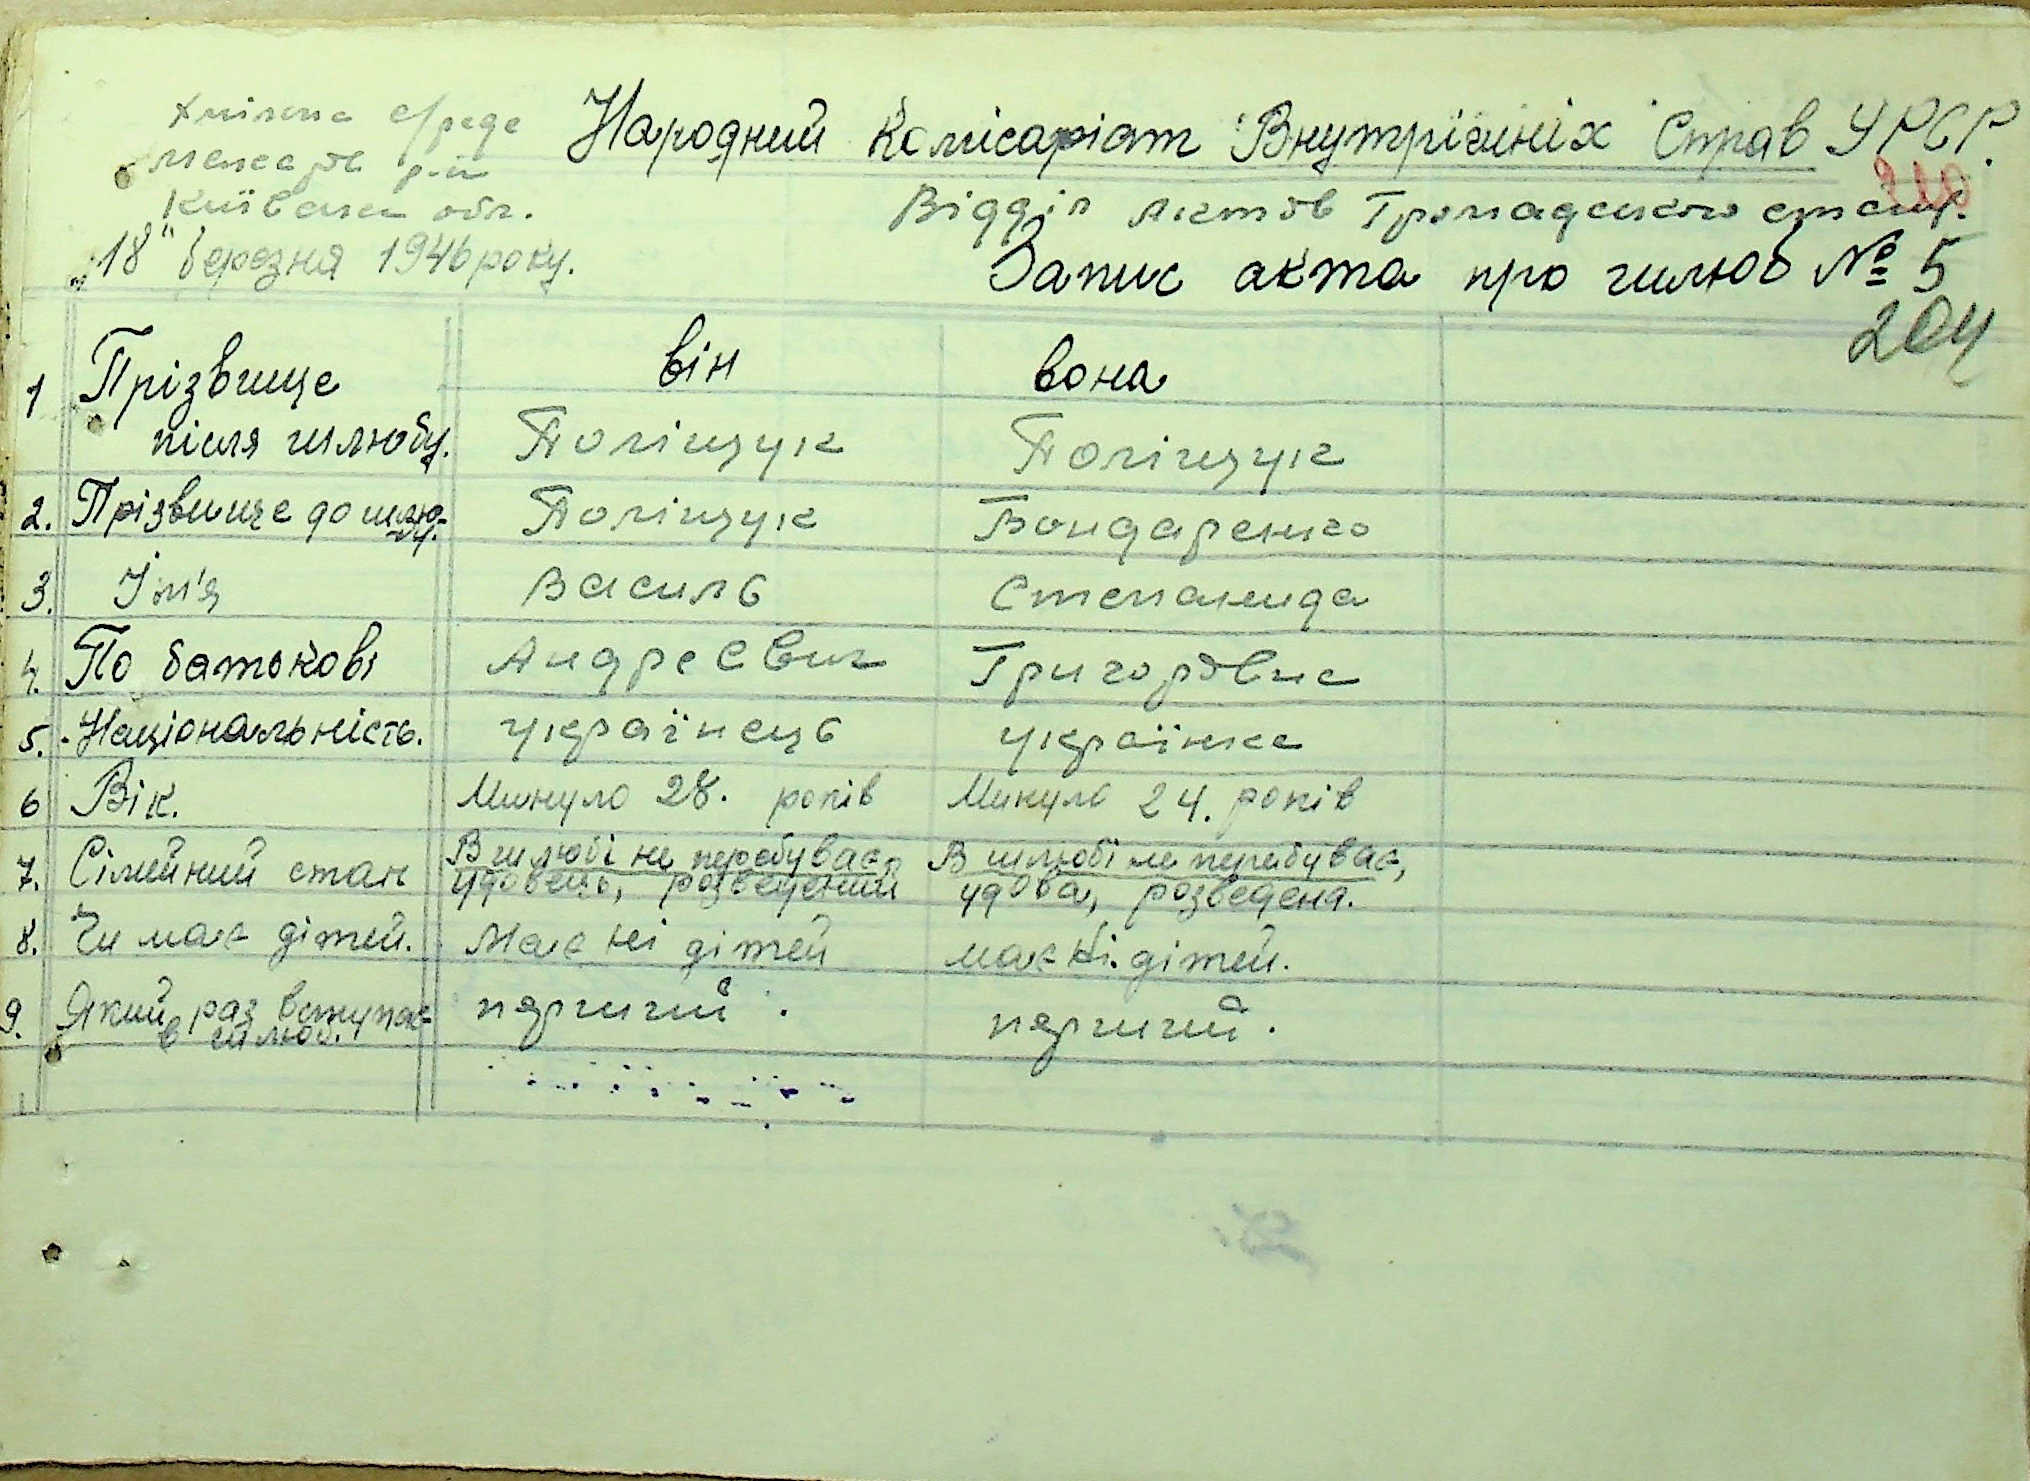 Народний Комісаріат Внутрішніх Справ УРСР.
с/рада
р-н
Київська обл.
Відділ Актов Громадського стану.
"18" березня 1946 року.
Запис акта про шлюб № 5
204
він вона
1 Прізвище
після шлюбу. Поліщук Поліщук
2. Прізвище до шлю-
бу. Поліщук Бондаренко
3. Ім'я Василь Степанида
4. По батькові Андреєвич Григоровна
5. Національність. українець українка
6 Вік. Минуло 28. років Минуло 24. років
7. Сімейний стан В шлюбі не перебуває, В шлюбі не перебуває,
удовець, розведений удова, розведена.
8. Чи має дітей. Має ні дітей має ні. дітей.
9. Який раз вступає
в шлюб. перший. перший.